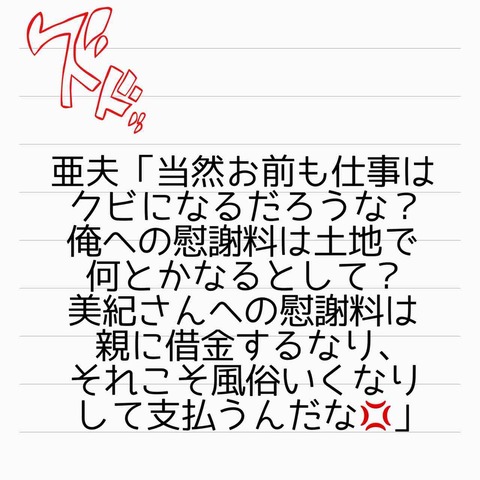 ズドドッ
亜夫「当然お前も仕事は
クビになるだろうな？
俺への慰謝料は土地で
何とかなるとして？
美紀さんへの慰謝料は
親に借金するなり、
それこそ風俗いくなり
して支払うんだな💢」